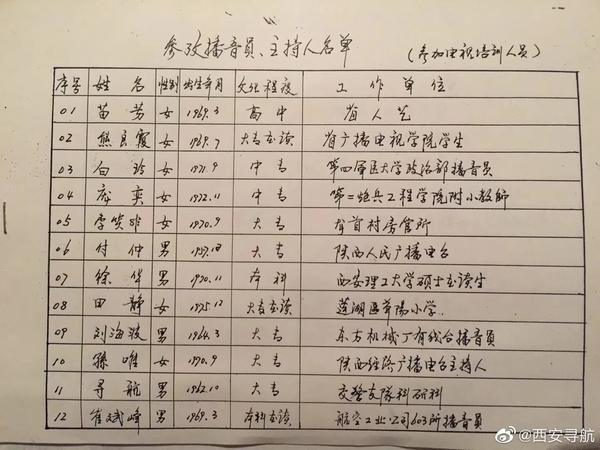 参改播音员、主持人名单
(参加电视培训人员)
序号 姓名 性别 出生年月 文化程度 工作单位
01 苗芳 女 1969.3 高中 省人艺
02 熊良霞 女 1969.7 大专在读 省广播电视学院学生
03 白玲 女 1971.9 中专 第四军医大学政治部播音员
04 庞奕 女 1972.11 中专 第二炮兵工程学院附小教师
05 李笑 女 1970.9 大专 村房管所
06 付仲 男 大专 陕西人民广播电台
07 徐华 男 1970.11 本科 西安理工大学硕士在读生
08 田静 女 1975.12 大专在读 莲湖区 阳小学
09 刘海波 男 1964.3 大专 东方机械厂有线台播音员
10 孙唯 女 1970.9 大专 陕西经济广播电台主持人
11 寻航 男 1962.10 大专 交警支队科研科
12 崔斌峰 男 1969.3 本科在读 航空工业公司603所播音员
@西安寻航